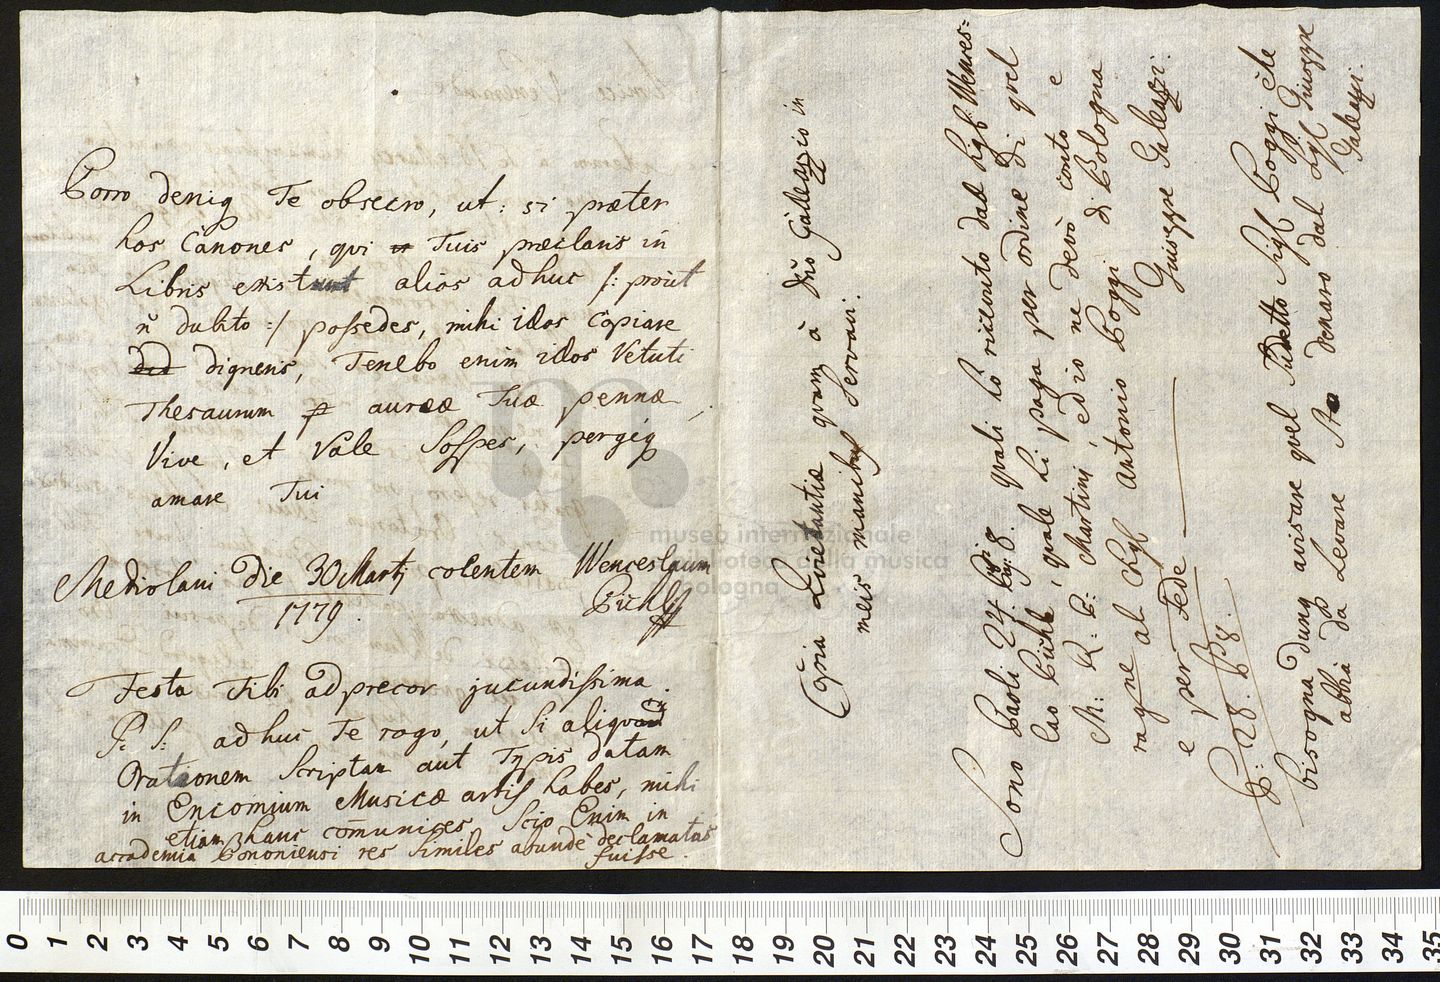 Porro deniq Te obsecro, ut: si præter
hos Canones, qui Tuis præclaris in
Libris existunt alios adhuc /: prout
ñ dubito :/ possedes, mihi illos copiare
digneris, Tenebo enim illos Veluti
Thesaurum aureæ Tuæ pennæ,
Vive, et Vale Sospes, pergéq
amare Tui
Mediolani Die 30 Martij colentem Wenceslaum
1779. Pichl
Festa Tibi adprecor jucundissima.
P: S: adhuc Te rogo, ut si aliquam
Orationem Scriptam aut Typis datam
in Encomium Musicæ artis habes, mihi
etiam hanc com̄unices Scio Enim in
accademia Bononiensi res similes abunde declamatas
fuisse.
Copia Quietantiæ quam à Dño Galleazzio in
meis manibus servavi.
Sono Paoli 24. quali ho ricevuto dal Sigr Wences=
lao Pichl, quale li paga per ordine di quel
M: R: P: Martini, ed io ne devo conto e
ragne al Sigr Antonio Poggi di Bologna
e per Fede Giuseppe Galeazzi.
P: 28. P 8.
bisogna dunq avisare quel Sudetto Sigr Poggi che
abbia da Levare Sto denaro dal Sigr Giuseppe
Galeazzi.
museo internazionale
e biblioteca della musica
di bologna
0 1 2 3 4 5 6 7 8 9 10 11 12 13 14 15 16 17 18 19 20 21 22 23 24 25 26 27 28 29 30 31 32 33 34 35